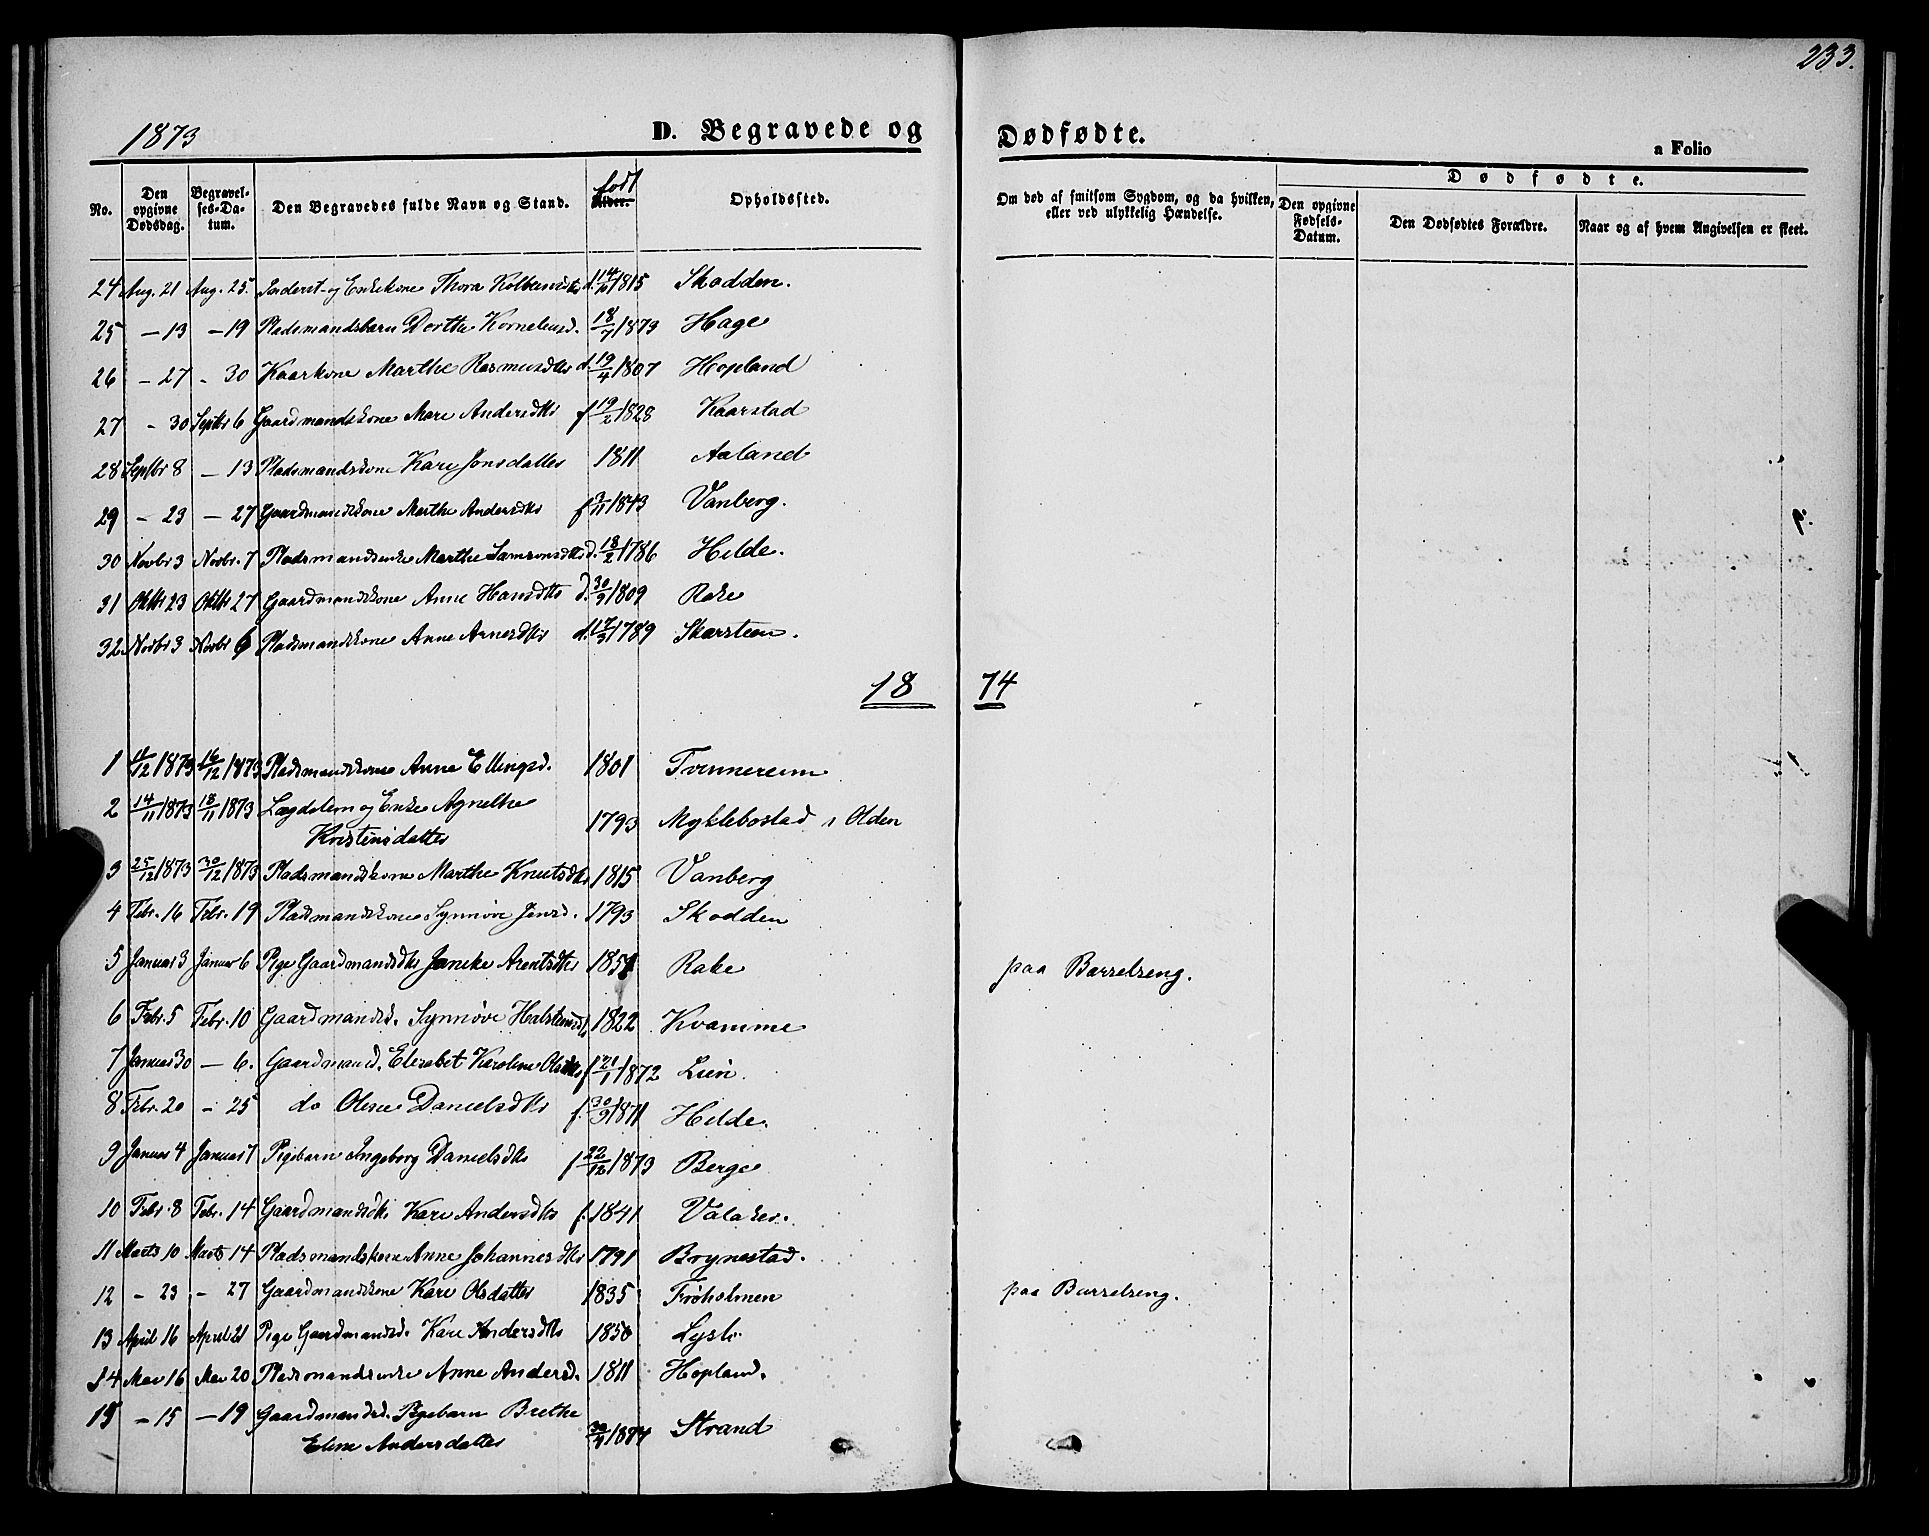 233.
1873
D. Begravede og Dødfødte.
a Folio
No.
Den opgivne Dødsdag.
Begravelses-Datum.
Den Begravedes fulde Navn og Stand.
født
Alder.
Opholdssted.
Om død af smitsom Sygdom, og da hvilken, eller ved ulykkelig Hændelse.
Dødfødte.
Den opgivne Fødsels-Datum.
Den Dødfødtes Forældre.
Naar og af hvem Angivelsen er skeet.
24 Aug. 21 Aug. 25. Inderst- og Enkekone Thora 1815 Skodden.
25 – 13 – 19 Pladsmandsbarn Dorthe Korneliusd. 18/7 1873 Hage
26 – 27 – 30 Kaarkone Marthe Rasmusdtr d. 19/4 1807 Hopland
27 – 30 Septbr 6 Gaardmandskone Mari Andersdtr f 19/2 1828 Kaarstad
28 Septbr 8 – 13 Pladsmandskone Kari Jonsdatter 1811 Aaland
29 – 23 – 27 Gaardmandskone Marthe Andersdtr f 3/11 1843 Vanberg.
30 Novbr 3 Novbr. 7 Pladsmandsenke Marthe Samsonsdtr d. 18/2 1786 Hilde.
31 Oktbr 23 Oktbr 27 Gaardmandskone Anne Hansdtr d. 30/9 1809 Rake
32 Novbr 3 Novbr 6 Pladsmandskone Anne Arnesdtr d. 17/3 1789 Skarsteen.
18 74
1 11/12 1873 16/12 1873 Pladsmandskone Anne Ellingsd. 1801 Tvinnereim
2 14/11 1873 18/11 1873 Lægdslem og Enke Agnethe
Kristensdatter 1793 Myklebostad i Olden
3 25/12 1873 30/12 1873 Pladsmandskone Marthe Knutsdtr 1815 Vanberg
4 Febr. 16 Febr. 19 Pladsmandskone Synnøve Jensd. 1793 Skodden
5 Januar 3 Januar 6 Pige Gaardmandsdtr Janike Arentsdtr Rake paa Barselseng.
6 Febr. 5 Febr. 10 Gaardmandsd. Synnøve 1822 Kvamme
7 Januar 30 – 6. Gaardmandsd. Elisabet Karoline Olsdtr f 21/1 1872 Lien.
8 Febr. 20 – 25 do Oline Danielsdtr f. 30/9 1871 Hilde.
9 Januar 4 Januar 7 Pigebarn Ingeborg Danielsdtr f 22/12 1873 Berge
10 Febr. 8 Febr. 14 Gaardmandsdtr Kari Andersdtr f. 1841 Valaker.
11 Marts 10 Marts 14 Pladsmandskone Anne Johannesdtr 1791 Brynestad.
12 – 23 – 27 Gaardmandskone Kari Olsdatter 1835 Frøholmen paa Barselseng.
13 April 16 April 21 Pige Gaardmandsd. Kari Andersdtr 1850
14 Mai 16 Mai 20 Pladsmandsenke Anne Andersd. 1811 Hopland.
15 – 15 – 19 Gaardmandsd. Pigebarn Brethe
Eline Andersdatter 1874 Strand